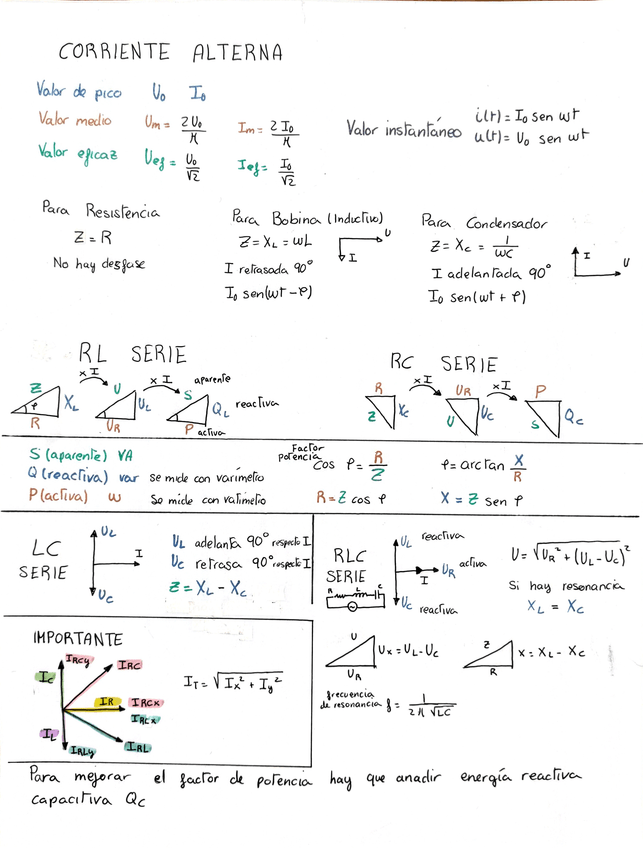 CORRIENTE ALTERNA
Valor de pico U₀ I₀
Valor medio Um = 2U₀/π Im = 2I₀/π
Valor eficaz Uef = U₀/√2 Ief = I₀/√2
Valor instantáneo i(t) = I₀ sen wt
u(t) = U₀ sen wt
Para Resistencia
Z = R
No hay desfase
Para Bobina (Inductivo)
Z = XL = wL
I retrasada 90°
I₀ sen(wt - φ)
U
I
Para Condensador
Z = Xc = 1/wC
I adelantada 90°
I₀ sen(wt + φ)
I
U
RL SERIE
x I x I aparente
Z φ XL R
U UL UR
S QL reactiva P activa
RC SERIE
x I x I
R Z Xc
UR U Uc
P S Qc
S (aparente) VA
Q (reactiva) var se mide con varímetro
P (activa) w se mide con vatímetro
Factor potencia cos φ = R/Z φ = arctan X/R
R = Z cos φ X = Z sen φ
LC SERIE
UL
I
Uc
UL adelanta 90° respecto I
Uc retrasa 90° respecto I
Z = XL - Xc
RLC SERIE
R L C
UL reactiva
I UR activa
Uc reactiva
U = √UR² + (UL - Uc)²
Si hay resonancia
XL = Xc
IMPORTANTE
IRCy IRC
Ic
IR IRCx
IRLx
IL
IRLy IRL
IT = √Ix² + Iy²
U Ux = UL - Uc
UR
Z X = XL - Xc
R
frecuencia de resonancia f = 1/2π√LC
Para mejorar el factor de potencia hay que anadir energía reactiva
capacitiva Qc